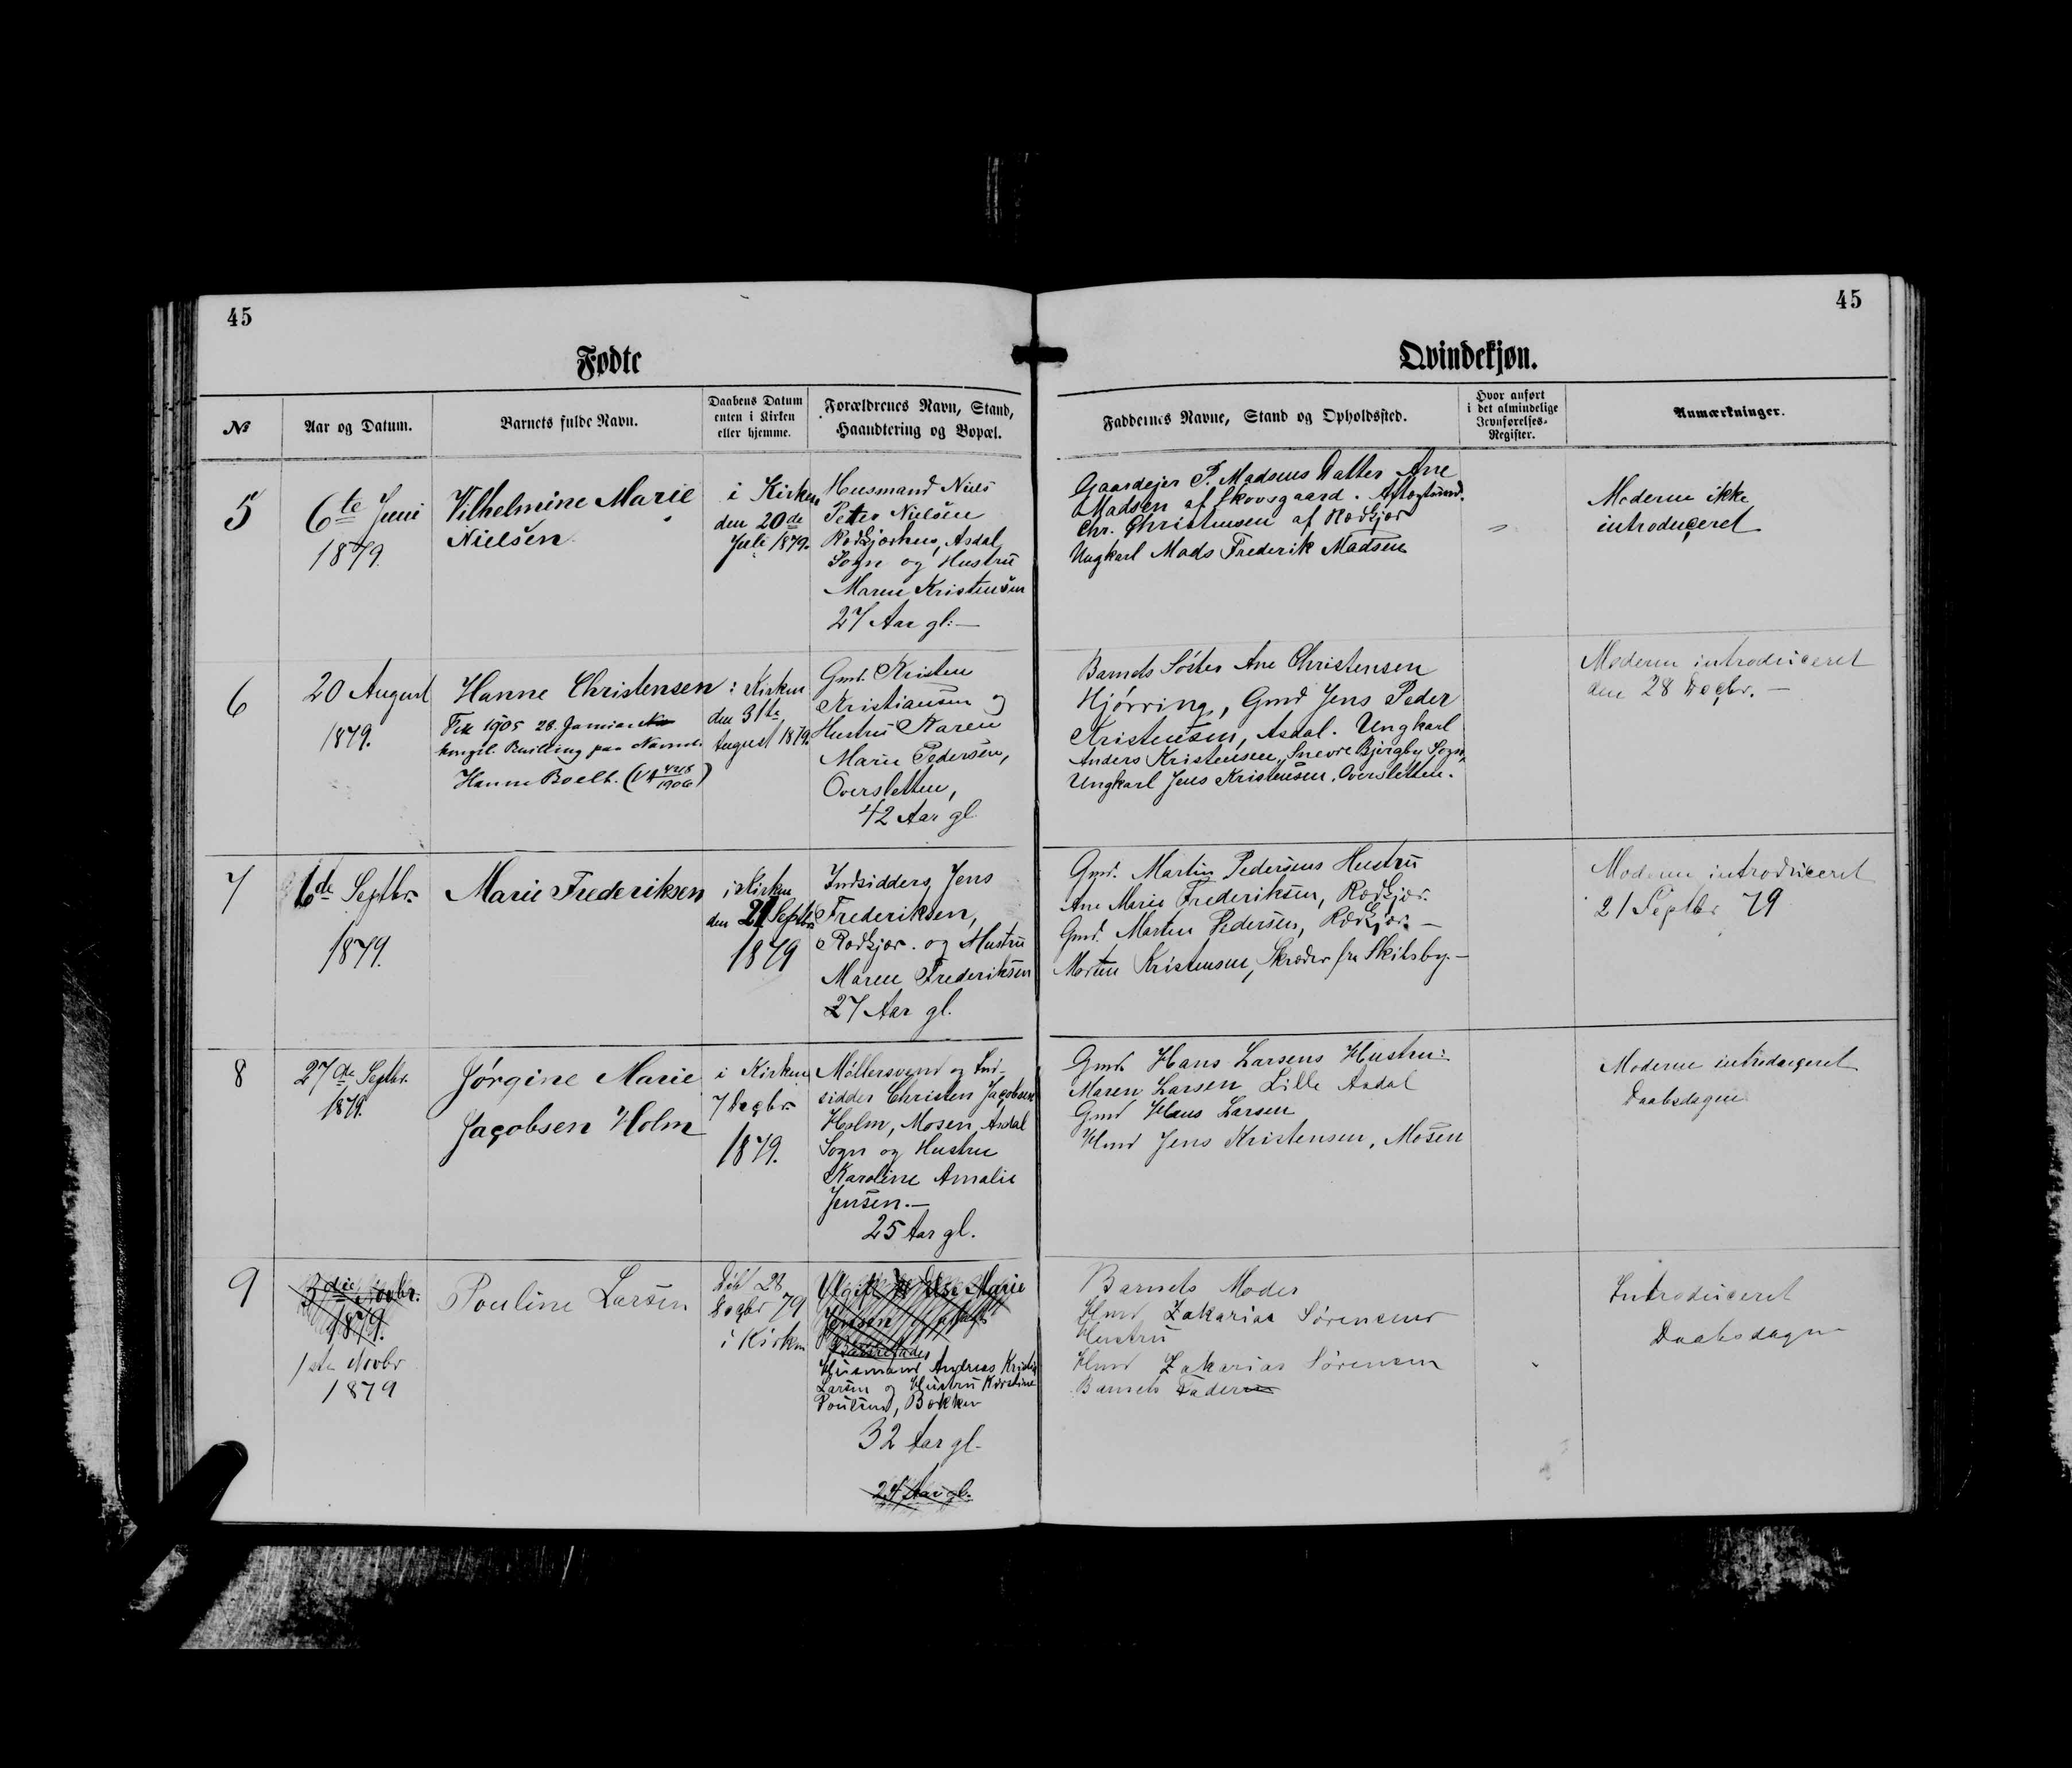 45
45
Fødte
Qvindekjøn.
№
Aar og Datum.
Barnets fulde Navn.
Daabens Datum
enten i Kirken
eller hjemme.
Forældrenes Navn, Stand,
Haandtering og Bopæl.
Faddernes Navne, Stand og Opholdssted.
Hvor anført
i det almindelige
Jevnførelses-
Register.
Anmærkninger.
5
6te Juni
1879.
Vilhelmine Marie
Nielsen
i Kirken
den 20de
Juli 1879.
Husmand Niels
Peter Nielsen
Rodkjærhus, Asdal
Sogn og Hustru
Maren Kristensen
27 Aar gl:—
Gaardejer P. Madsens Datter Ane
Madsen af Skovsgaard. Aftægtsmd.
Chr. Christensen af Rødkjær
Ungkarl Mads Frederik Madsen
"
Moderen ikke
introduceret
6
20 August
1879.
Hanne Christensen
Fik 1905 28. Januar
kongel. Bevilling paa Navnet
Hanne Boelt. (14 4218/1906)
i Kirken
den 31te
August 1879.
Gmd. Kristen
Kristiansen og
Hustru Karen
Marie Pedersen,
Oversletten,
42 Aar gl
Barnets Søster Ane Christensen
Hjørring, Gmd Jens Peder
Kristensen, Asdal. Ungkarl
Anders Kristensen, Snevre Bjergby Sogn,
Ungkarl Jens Kristensen, Oversletten.
Moderen introduceret
den 28 Decbr. —
7
6de Septbr.
1879.
Marie Frederiksen
i Kirken
den 21 Septbr
1879
Indsidder Jens
Frederiksen,
Rødkjær. og Hustru
Maren Frederiksen
27 Aar gl.
Gmd. Martin Pedersens Hustru
Ane Marie Frederiksen, Rødkjær.
Gmd. Martin Pedersen, Rødkjær. —
Morten Kristensen, Skræder fra Skibsby. —
Moderen introduceret
21 Septbr 79
8
27de Septbr.
1879.
Jørgine Marie
Jacobsen Holm
i Kirken
7 Decbr.
1879.
Møllersvend og Ind-
sidder Christen Jacobsen
Holm, Mosen, Asdal
Sogn og Hustru
Karoline Amalie
Jensen.—
25 Aar gl.
Gmd. Hans Larsens Hustru:
Maren Larsen Lille Asdal
Gmd Hans Larsen
Hmd Jens Kristensen, Mosen
Moderen introduceret
Daabsdagen
9
3die Novbr.
1879.
1ste Novbr
1879
Pouline Larsen
Døbt 28
Decbr 79
i Kirken
Ugifte Else Marie
Jensen
Barnefader
Husmand Andreas Kristian
Larsen og Hustru Kirstine
Poulsen, Bækken
32 Aar gl.
24 Aar gl.
Barnets Moder
Hmd Zakarias Sørensens
Hustru
Hmd Zakarias Sørensen
Barnets Fader
Introduceret
Daabsdagen